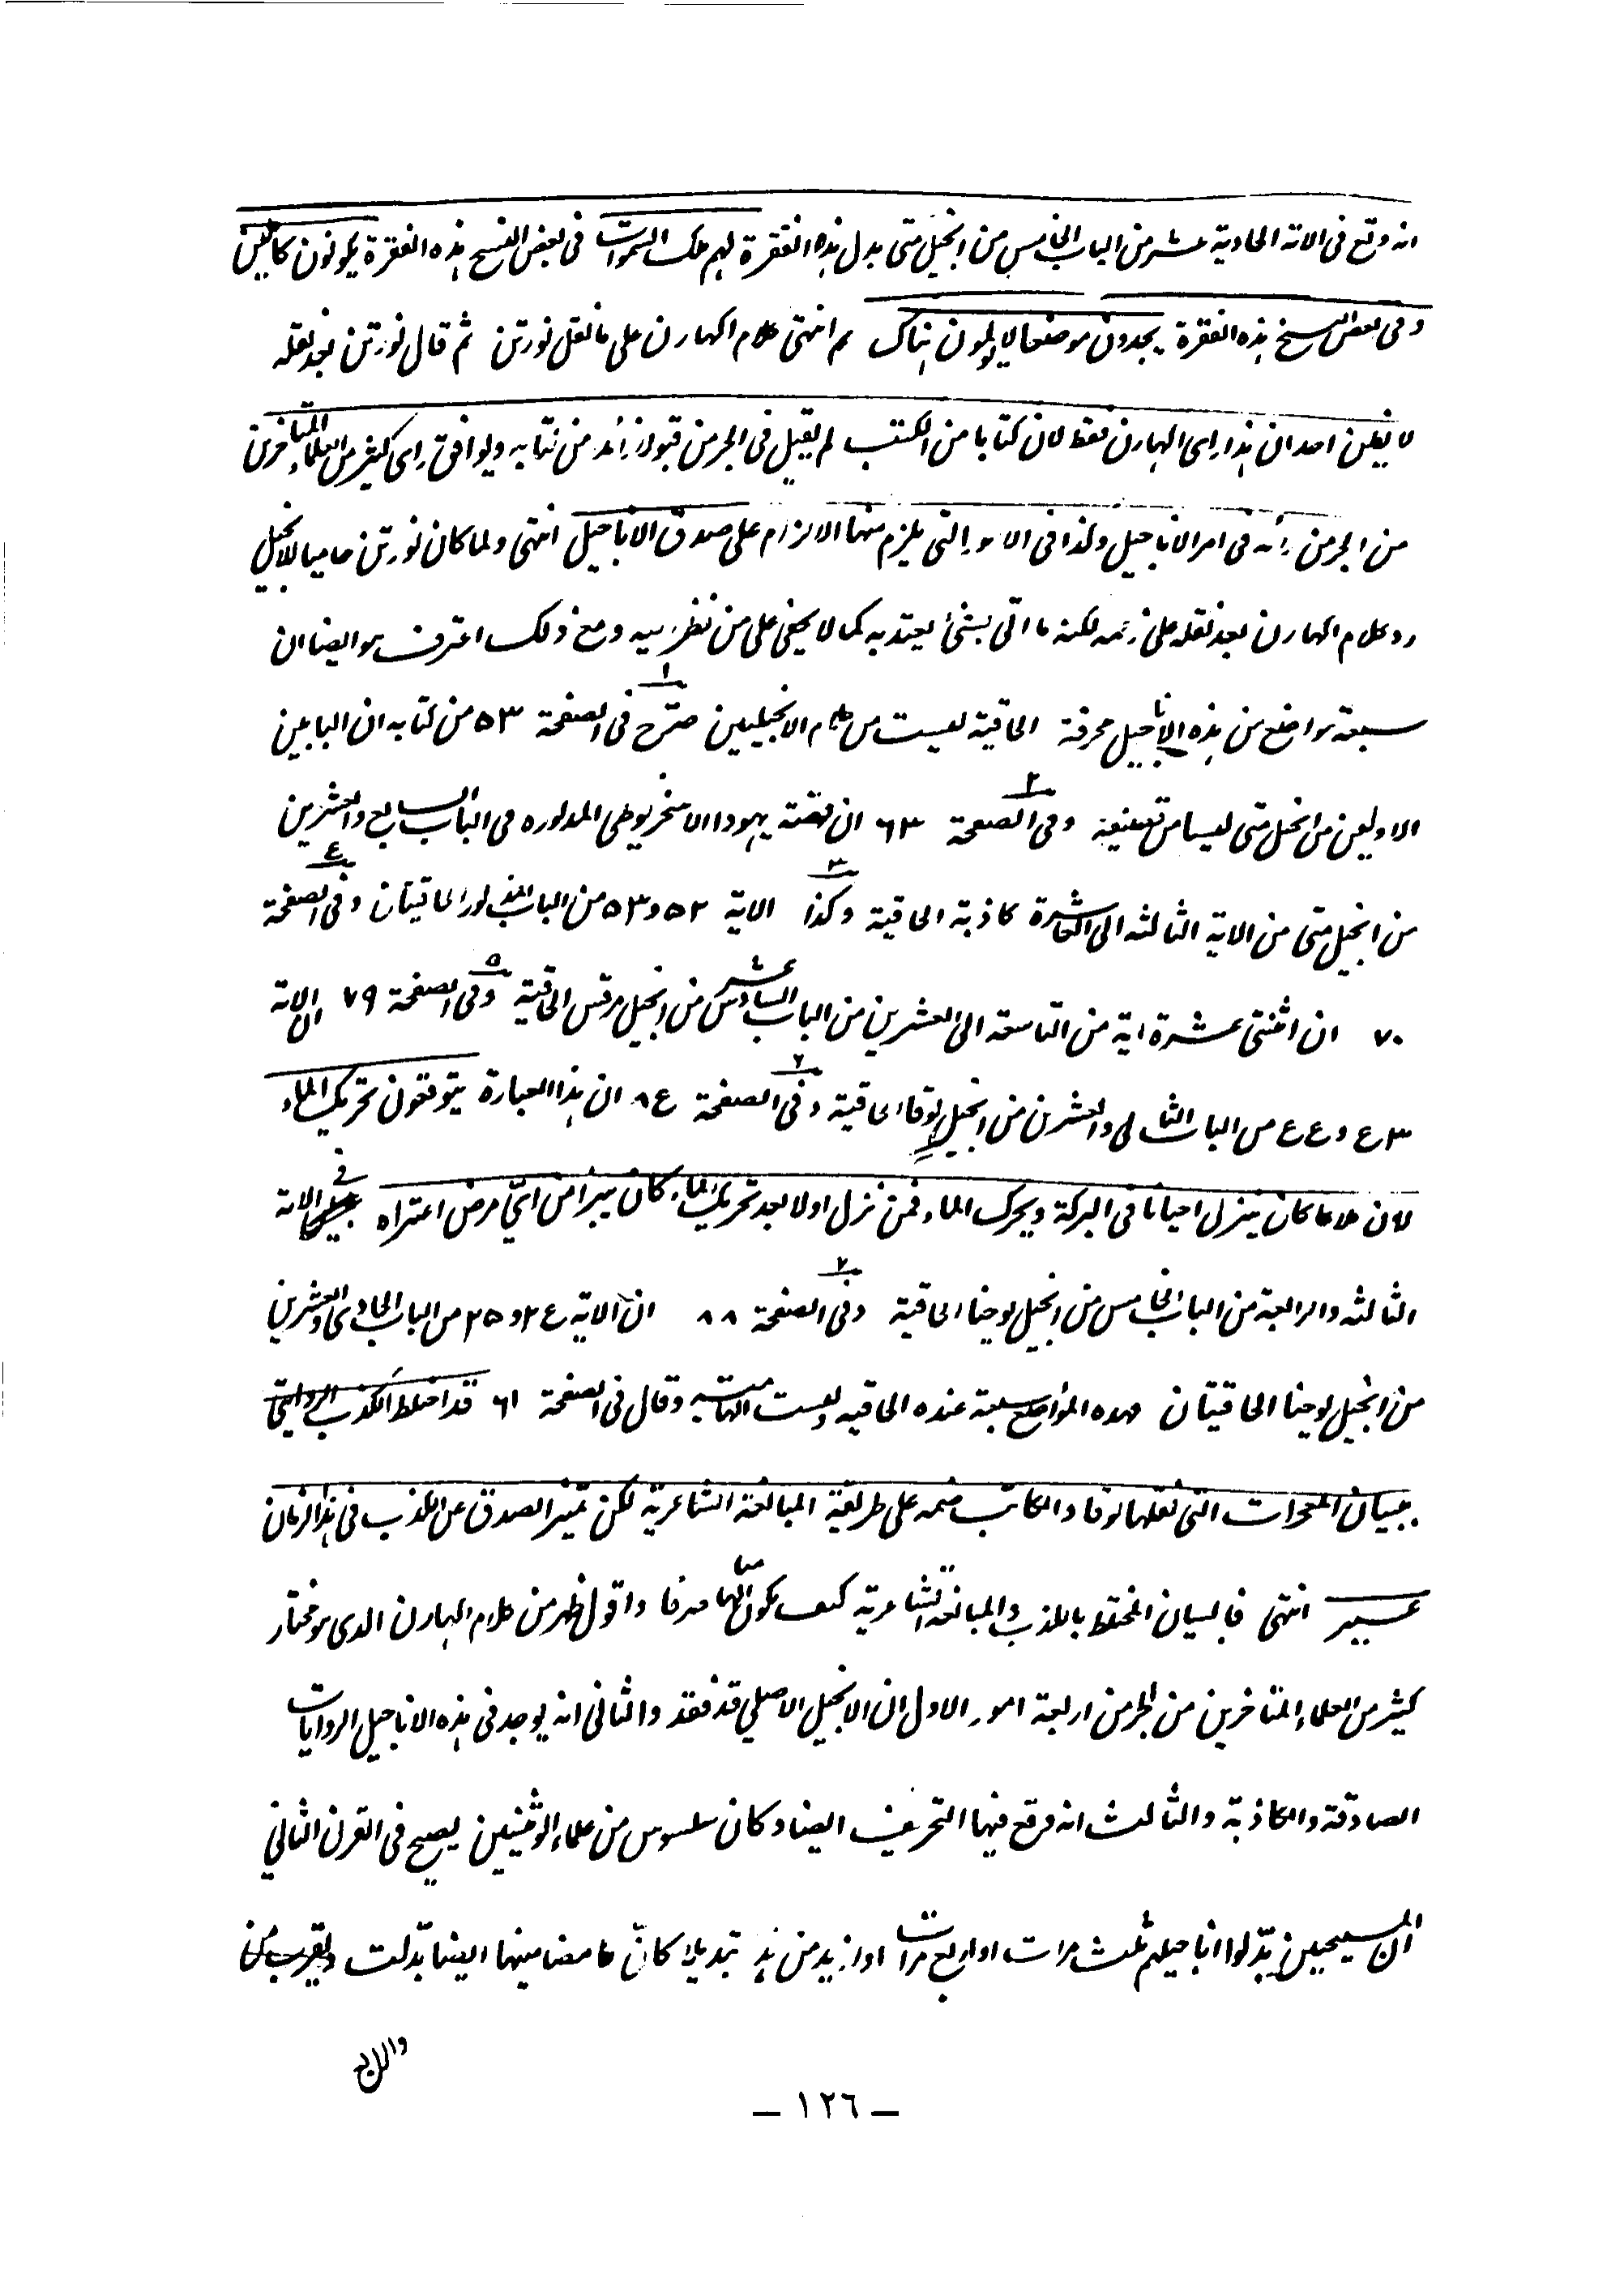 انه وقع فى الاية الحادية عشر من الباب الخامس من انجيل متى بدل هذه الفقرة لهم ملك السموات فى بعض النسخ هذه الفقرة يكونون كاملين
وفى بعض النسخ هذه الفقرة يجدون موضعا لا يولمون هناك ثم انتهى كلام اكهارن على ما نقل نورتن ثم قال نورتن بعد نقله
لا يظن احد ان هذا راى اكهارن فقط لان كتابا من الكتب لم يقبل فى الجرمن قبولا زائد من كتابه ويوافق راى كثير من العلماء المتاخرين
من الجرمن رأيه فى امر الاناجيل وكذا فى الامور التى يلزم منها الالزام على صدق الاناجيل انتهى ولما كان نورتن حاميا للانجيل
رد كلام اكهارن بعد نقله على زعمه لكنه ما اتى بشئ يعتد به كما لا يخفى على من نظر اليه ومع ذلك اعترف هو ايضا ان
سبعة مواضع من هذه الاناجيل محرفة الحاقية ليست من كلام الانجيليين ١ صرّح فى الصفحة ٥٣ من كتابه ان البابين
الاولين من انجيل متى ليسا من تصنيفه ٢ وفى الصفحة ٦٣ ان قصة يهودا الاسخريوطى المذكورة فى الباب السابع والعشرين
من انجيل متى من الاية الثالثه الى العاشرة كاذبة الحاقية ٣ وكذا الاية ٥٢ و ٥٣ من الباب المذكور الحاقيتان ٤ وفى الصفحة
٧٠ ان اثنتى عشرة اية من التاسعة الى العشرين من الباب السادس عشر من انجيل مرقس الحاقية ٥ وفى الصفحة ٧٩ ان الاية
٤٣ و ٤٤ من الباب الثانى والعشرين من انجيل لوقا الحاقية ٦ وفى الصفحة ٨٤ ان هذا العبارة يتوقعون تحريك الماء
لان ملاكا كان ينزل احيانا فى البركة ويحرك الماء فمن نزل اولا بعد تحريك الماء كان يبرأ من اىّ مرض اعتراه فى الاية
الثالثه والرابعة من الباب الخامس من انجيل يوحنا الحاقية ٧ وفى الصفحة ٨٨ ان الاية ٢٤ و ٢٥ من الباب الحادى والعشرين
من انجيل يوحنا الحاقيتان فهذه المواضع سبعة عنده الحاقيه وليست الهامية وقال فى الصفحة ٦١ قد اختلط الكذب الروايتى
ببيان المعجزات التى نقلها لوقا والكاتب ضمه على طريقة المبالغة الشاعرية لكن تميز الصدق عن الكذب فى هذا الزمان
عسير انتهى فالبيان المختلط بالكذب والمبالغة الشاعرية كيف يكون الهاميا صرفا واقول ظهر من كلام اكهارن الذى هو مختار
كثير من العلماء المتاخرين من الجرمن اربعة امور الاول ان الانجيل الاصلى قد فقد والثانى انه يوجد فى هذه الاناجيل الروايات
الصادقة والكاذبة والثالث انه وقع فيها التحريف ايضا وكان سلسوس من علماء الوثنيين يصيح فى القرن الثانى
ان المسيحيين بدّلوا اناجيلهم ثلث مرات او اربع مرات او ازيد من هذ تبديلا كانّ مضامينها ايضا بدّلت
والرابع
— ١٢٦ —